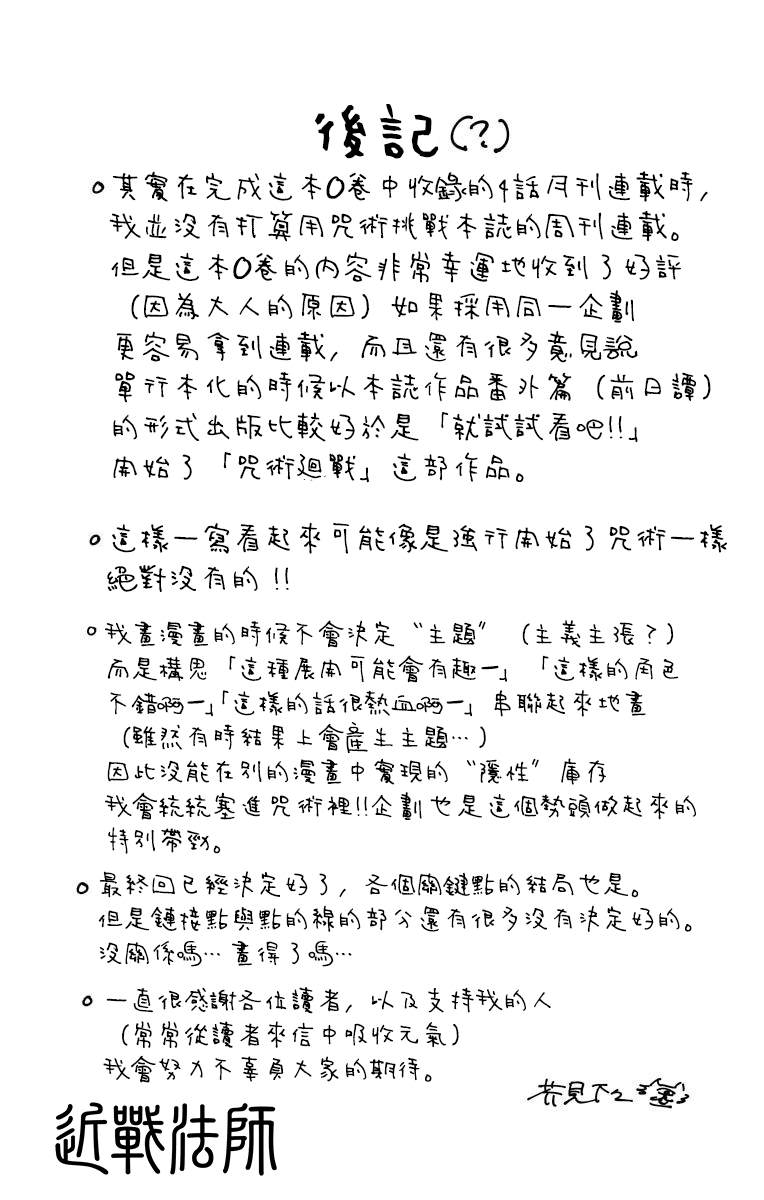 後記(?)
○其實在完成這本0卷中收錄的4話月刊連載時,
我並沒有打算用咒術挑戰本誌的周刊連載。
但是這本0卷的內容非常幸運地收到了好評
(因為大人的原因)如果採用同一企劃
更容易拿到連載,而且還有很多意見說
單行本化的時候以本誌作品番外篇(前日譚)
的形式出版比較好於是「就試試看吧!!」
開始了「咒術廻戰」這部作品。
○這樣一寫看起來可能像是強行開始了咒術一樣
絕對沒有的!!
○我畫漫畫的時候不會決定〝主題〞(主義主張?)
而是構思「這種展開可能會有趣ー」「這樣的角色
不錯啊ー」「這樣的話很熱血啊ー」串聯起來地畫
(雖然有時結果上會產生主題…)
因此沒能在別的漫畫中實現的〝隱性〞庫存
我會統統塞進咒術裡!!企劃也是這個勢頭做起來的
特別帶勁。
○最終回已經決定好了,各個關鍵點的結局也是。
但是鏈接點與點的線的部分還有很多沒有決定好的。
沒關係嗎…畫得了嗎…
○一直很感謝各位讀者,以及支持我的人
(常常從讀者來信中吸收元氣)
我會努力不辜負大家的期待。
芥見下々
近戰法師